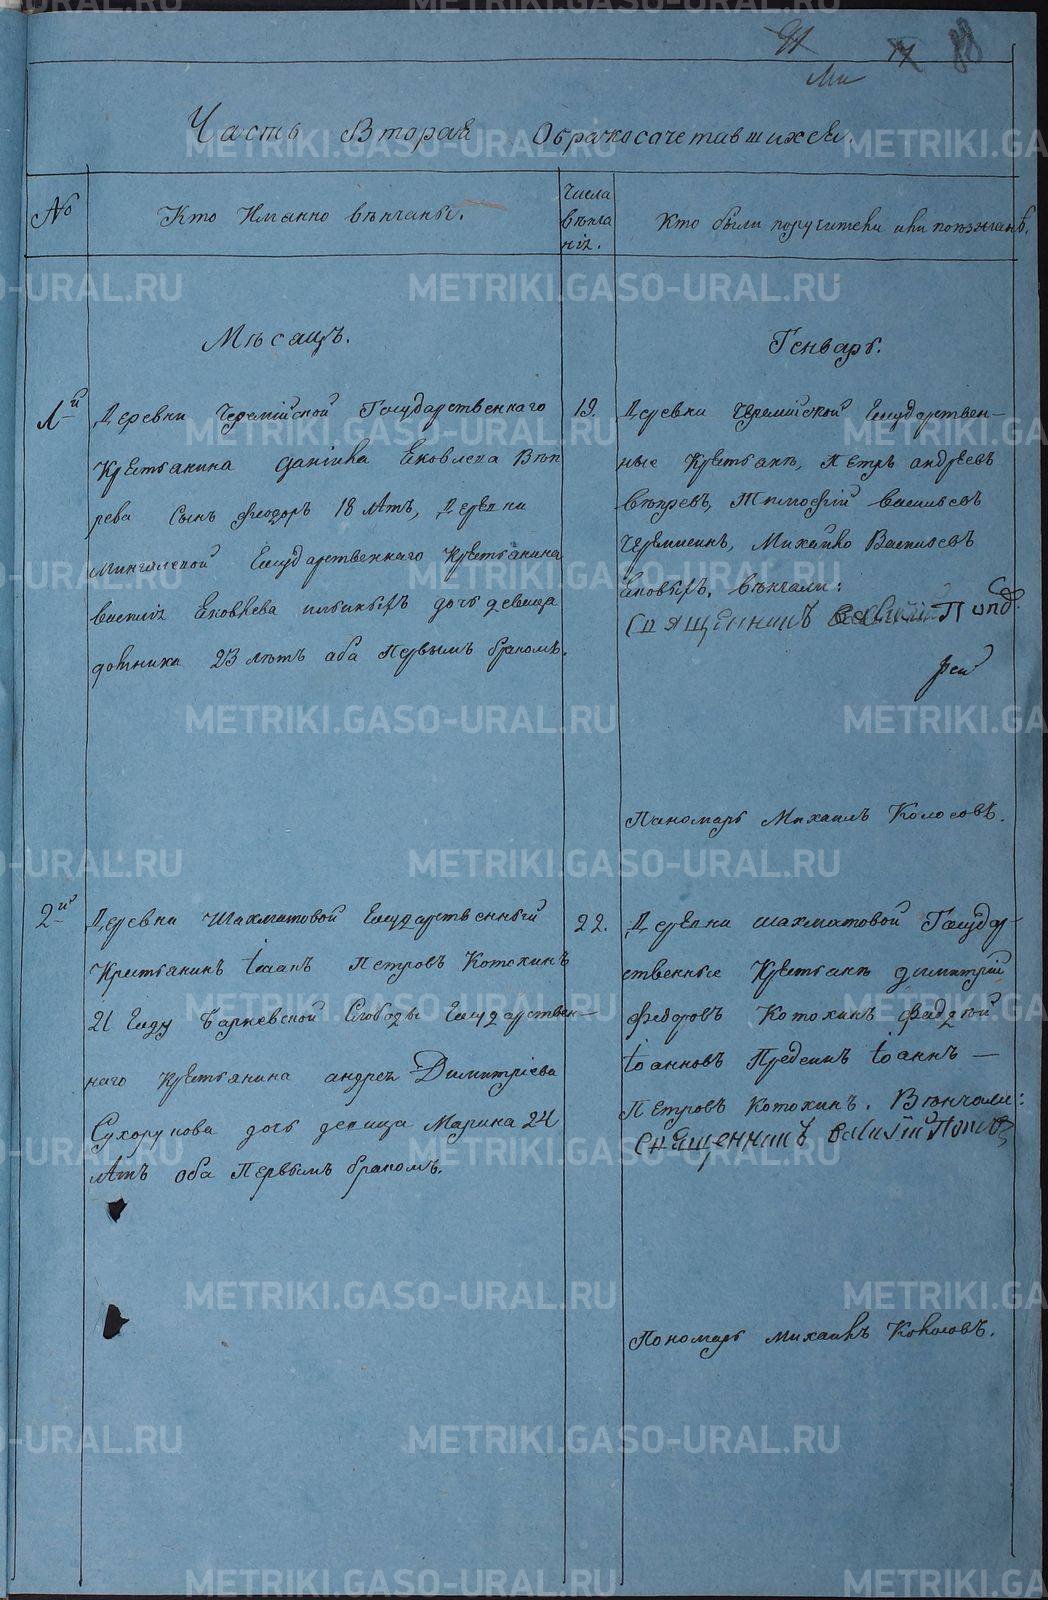 88
Часть Вторая О бракосочетавшихся.
№
Кто Имянно венчаны.
Числа венча нія.
Кто были поручители или поезжанѣ.
Мѣсяцъ.
Генварь.
1й
Деревни Черемисской Государственнаго
Крестьянина Данiила Яковлева Вѣп
рева Сынъ Феодоръ 18 лѣтъ, Деревни
Государственнаго Крестьянина
Василія Яковлева дочь девица
23 лѣтъ оба Первымъ бракомъ.
19.
Деревни Черемисской Государствен-
ные Крестьяне, Петръ Андреевъ
Вепревъ, Тимофій Васильевъ
Черемисинъ, Михайло Васильевъ
Яковлевъ. Венчали:
Священникъ Василій Попо
Пономарь Михаилъ Колосовъ.
2й
Деревни Шахматовой Государственный
Крестьянинъ Іоаннъ Петровъ Котохинъ
21 Году Барневской Слободы Государствен-
наго Крестьянина Андрея Димитріева
Сухорукова дочь девица Марина 24
лѣтъ оба Первымъ бракомъ.
22.
Деревни Шахматовой Государ-
ственные Крестьяне Димитрій
Феодоровъ Котохинъ Фаддей
Іоанновъ Предеинъ Іоаннъ
Петровъ Котохинъ. Венчали:
Священникъ Василій Поповъ
Пономарь Михаилъ Колосовъ.
METRIKI.GASO-URAL.RU